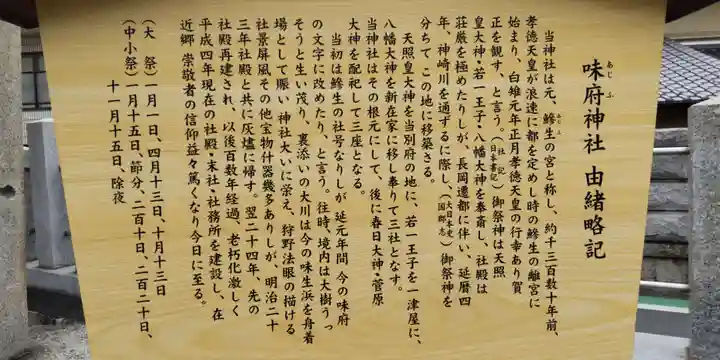 味府神社 由緒略記
あじふ
当神社は元、鯵生の宮と称し、約千三百数十年前、
あじふ
孝徳天皇が浪速に都を定めし時の鯵生の離宮に
始まり、白雉元年正月孝徳天皇の行幸あり賀
正を観す、と言う。(社記 日本書記)御祭神は天照
皇大神・若一王子・八幡大神を奉斎し、社殿は
荘厳を極めたりしが、長岡遷都に伴い、延暦四
年、神崎川を通ずるに際し、(大日本史 国郡志)御祭神を
分ちて この地に移築さる。
天照皇大神を当別府の地に、若一王子を一津屋に、
八幡大神を新在家に移し奉りて三社となす。
当神社はその根元にして、後に春日大神・菅原
大神を配祀して三座となる。
当初は鯵生の社号なりしが 延元年間 今の味府
の文字に改めたり、と言う。往時、境内は大樹うっ
そうと生い茂り、裏添いの大川は今の味生浜を舟着
場として賑い 神社大いに栄え、狩野法眼の描ける
社景屏風その他宝物什器幾多ありしが、明治二十
三年社殿と共に灰燼に帰す。翌二十四年、先の
社殿再建され、以後百数年経過、老朽化激しく
平成四年現在の社殿・末社・社務所を建設し、在
近郷 崇敬者の信仰益々篤くなり今日に至る。
(大 祭)一月一日、四月十三日、十月十三日
(中小祭)一月十五日、節分、二百十日、二百二十日、
十一月十五日、除夜